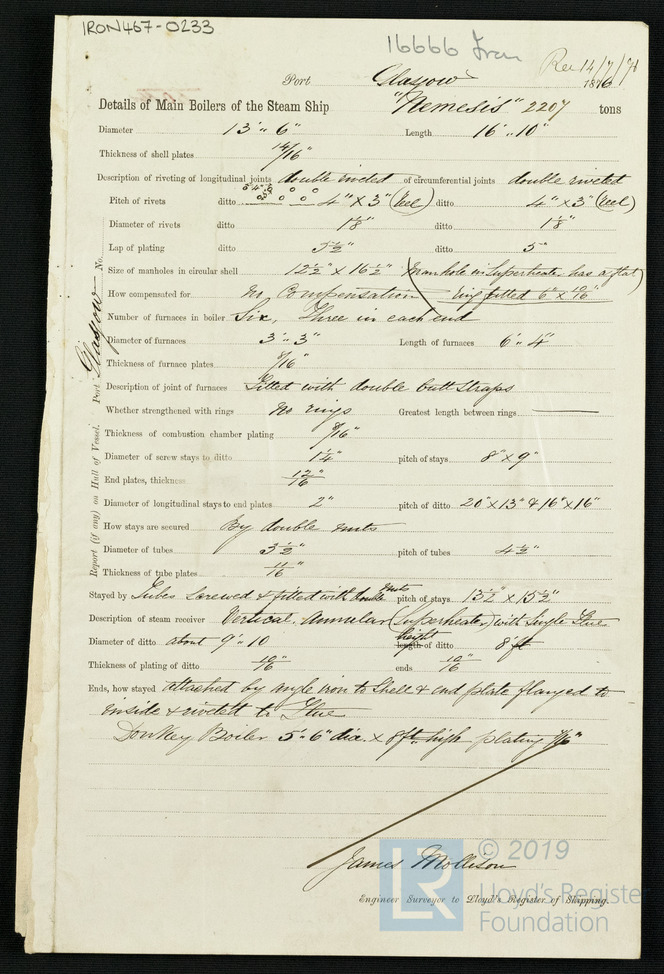 IRON467-0233
16666 Iron
Rec 14/7/76
Port Glasgow 1876
Details of Main Boilers of the Steam Ship "Nemesis" 2207 tons
Diameter 13'.. 6" Length 16'..10"
Thickness of shell plates 14/16"
Description of riveting of longitudinal joints double riveted of circumferential joints double riveted
Pitch of rivets ditto 4" x 3" (Reel) ditto 4" x 3" (Reel)
Diameter of rivets ditto 1 1/8" ditto 1 1/8"
Lap of plating ditto 5 1/2" ditto 5"
Size of manholes in circular shell 12 1/2" x 16 1/2" (manhole in Superheater has a flat
How compensated for No Compensation ring fitted 6" x 10/16"
Number of furnaces in boiler Six, Three in each end
Diameter of furnaces 3'.. 3" Length of furnaces 6'.. 4"
Thickness of furnace plates 8/16"
Description of joint of furnaces Fitted with double butt straps
Whether strengthened with rings No rings Greatest length between rings
Thickness of combustion chamber plating 8/16"
Diameter of screw stays to ditto 1 1/4" pitch of stays 8" x 9"
End plates, thickness 12/16"
Diameter of longitudinal stays to end plates 2" pitch of ditto 20" x 13" & 16" x 16"
How stays are secured By double nuts
Diameter of tubes 3 1/2" pitch of tubes 4 1/2"
Thickness of tube plates 11/16"
Stayed by Tubes Screwed & fitted with double nuts pitch of stays 13 1/2" x 15 1/2"
Description of steam receiver Vertical Annular (Superheater) with Single Flue
Diameter of ditto about 9'.. 10 length height of ditto 8 ft
Thickness of plating of ditto 10/16" ends 10/16"
Ends, how stayed attached by angle iron to Shell & end plate flanged to
inside & rivetett to Flue
Donkey Boiler 5'.. 6" dia. x 8ft.. high plating 7/16"
James Mollison
Engineer Surveyor to Lloyd's Register of Shipping.
Port Glasgow No.
Report (if any) on Hull of Vessel.
LR
© 2019
Lloyd's Register
Foundation